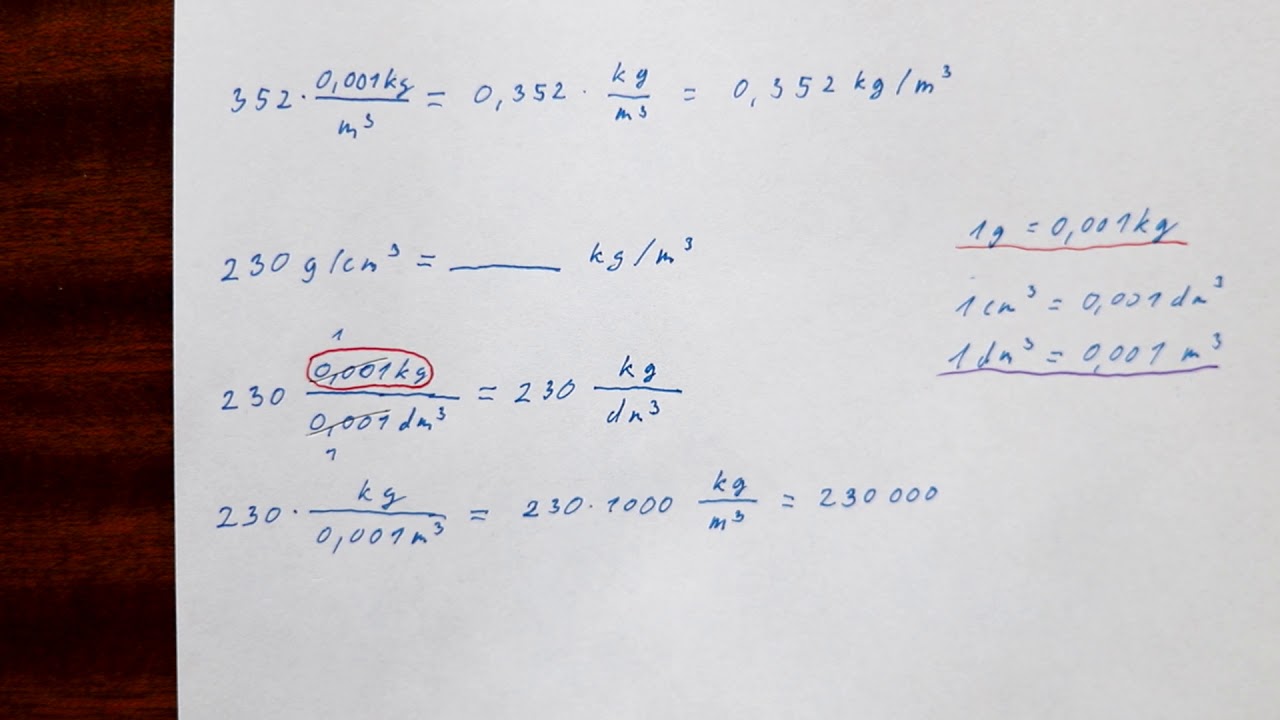 352 · 0,001kg/m³ = 0,352 · kg/m³ = 0,352 kg/m³
1g = 0,001kg
230 g/cm³ = ____ kg/m³
1cm³ = 0,001dm³
1dm³ = 0,001 m³
1
230 0,001kg/0,001dm³ = 230 kg/dm³
1
230 · kg/0,001m³ = 230·1000 kg/m³ = 230000